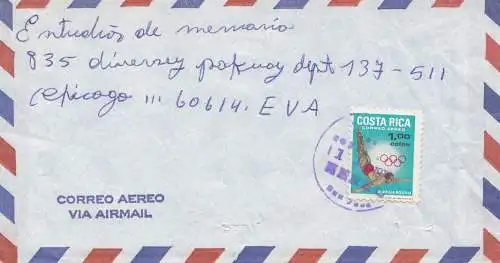 Estudios de memario
835 diversey parkway dept 137-511
chicago ill 60614. E V A
COSTA RICA
CORREO AEREO
1.00
colon
CORREO AEREO
VIA AIRMAIL